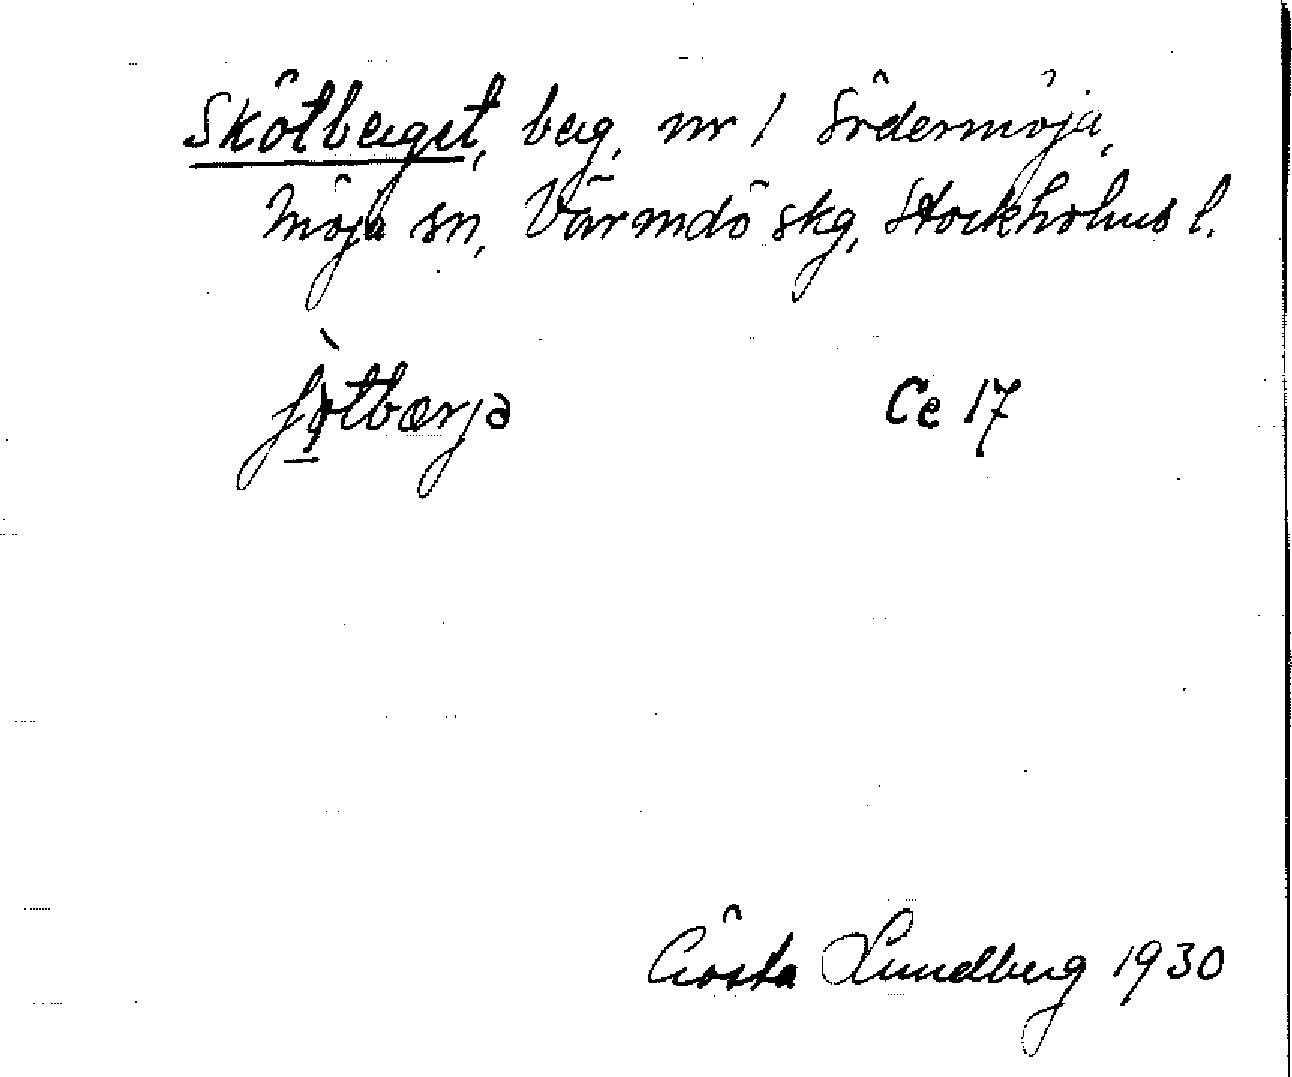 Skötberget, berg, nr 1 Södermöja,
Möja sn, Värmdö skg, Stockholms l.
Ce 17
Gösta Lundberg 1930